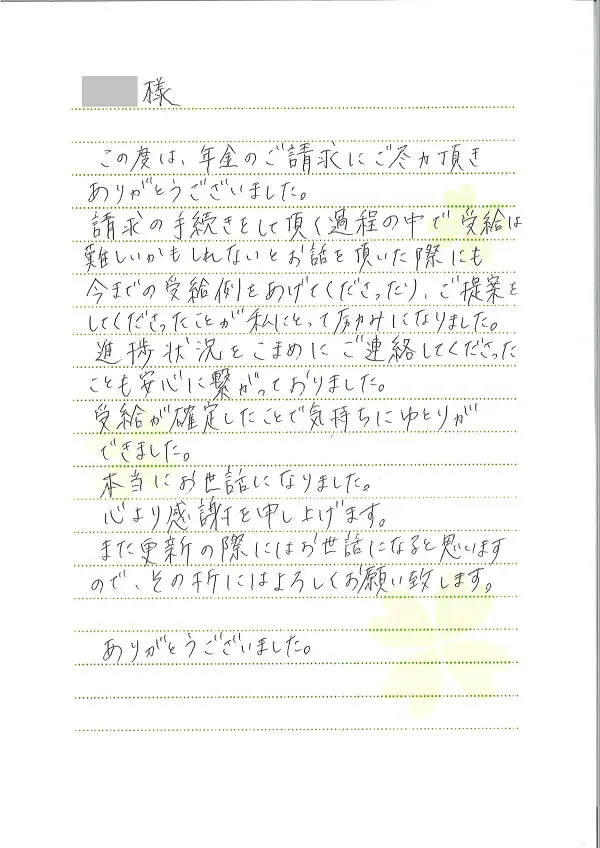 様
この度は、年金のご請求にご尽力頂き
ありがとうございました。
請求の手続きをして頂く過程の中で受給は
難しいかもしれないとお話を頂いた際にも
今までの受給例をあげてくださったり、ご提案を
してくださったことが私にとって励みになりました。
進捗状況をこまめにご連絡してくださった
ことも安心に繋がっておりました。
受給が確定したことで気持ちにゆとりが
できました。
本当にお世話になりました。
心より感謝を申し上げます。
また更新の際にはお世話になると思います
ので、その折にはよろしくお願い致します。
ありがとうございました。